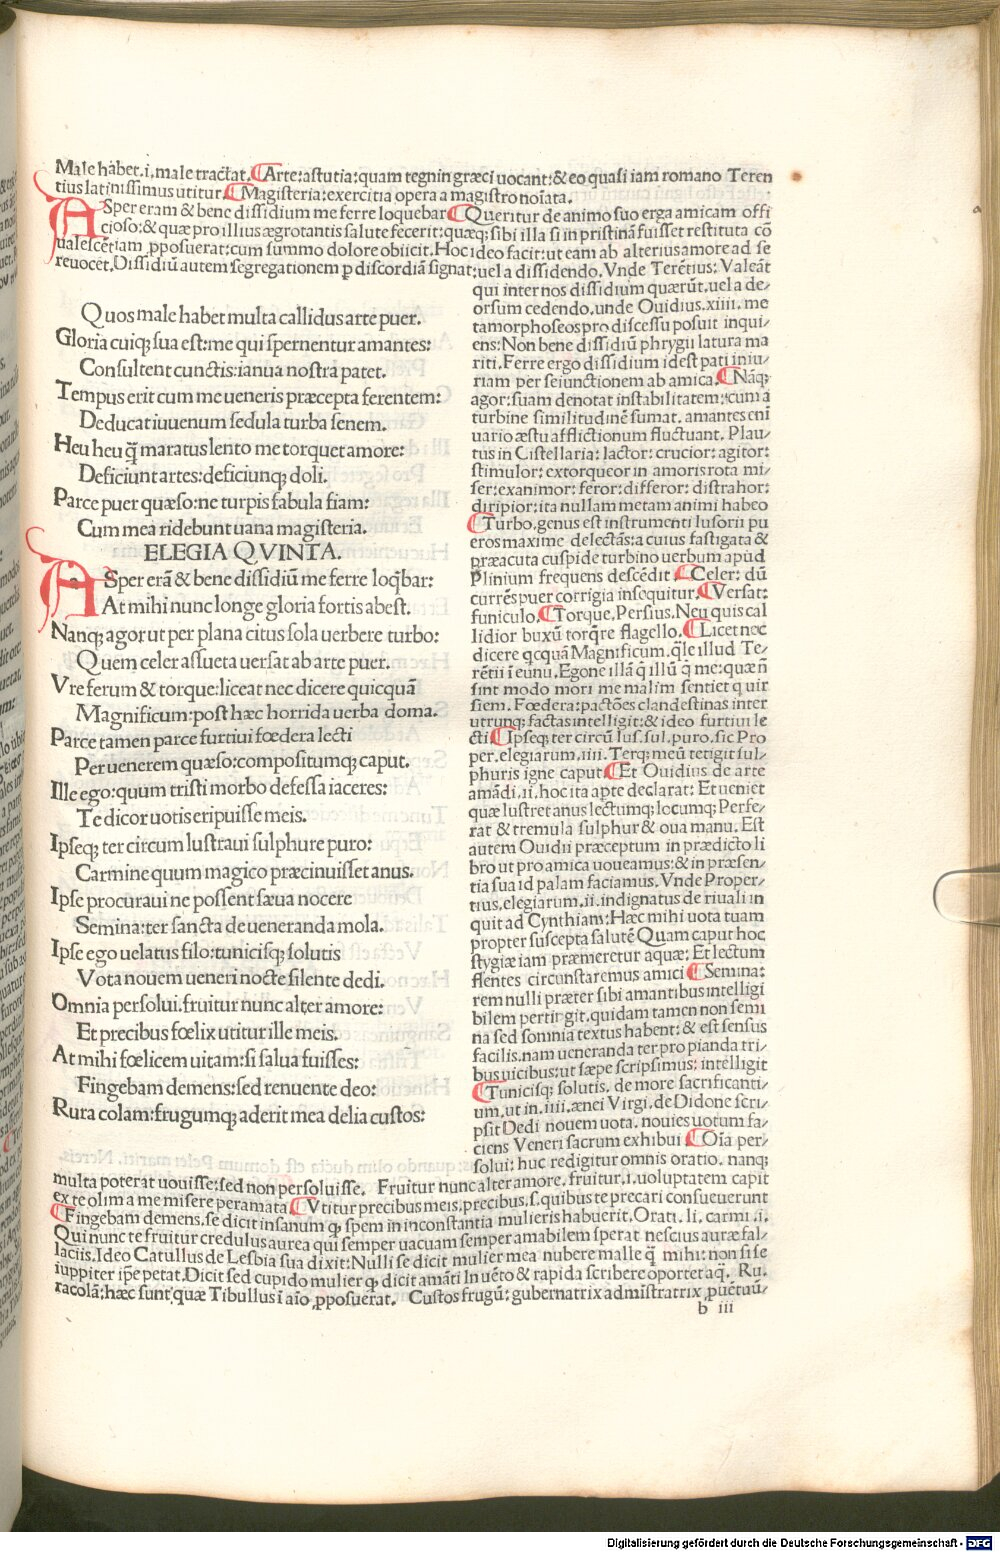 Male habet.i.male tractat. Arte:astutia:quam tegnin græci uocant:& eo quasi iam romano Teren
tius latinissimus utitur. Magisteria:exercitia opera a magistro noīata.
ASper eram & bene dissidium me ferre loquebar Queritur de animo suo erga amicam offi
cioso:& quæ pro illius ægrotantis salute fecerit:quæq; sibi illa si in pristinā fuisset restituta cō
ualescētiam ,pposuerat:cum summo dolore obiicit.Hoc ideo facit:ut eam ab alterius amore ad se
reuocet.Dissidiū autem segregationem p discordiā signat:uel a dissidendo.Vnde Terētius: Valeāt
qui inter nos dissidium quærūt.uel a de/
orsum cedendo.unde Ouidius.xiiii.me
tamorphoseos pro discessu posuit inqui/
ens:Non bene dissidiū phrygii latura ma
riti.Ferre ergo dissidium id est pati iniu/
riam per seiunctionem ab amica. Nāq;
agor:suam denotat instabilitatem:cum a
turbine similitudinē sumat. amantes enī
uario æstu afflictionum fluctuant. Plau/
tus in Cistellaria: Iactor: crucior: agitor:
stimulor: extorqueor in amoris rota mi/
ser:exanimor: feror: differor: distrahor:
diripior:ita nullam metam animi habeo
Turbo.genus est instrumenti lusorii pu
eros maxime delectās:a cuius fastigata &
præacuta cuspide turbino uerbum apud
Plinium frequens descēdit Celer: dū
currēs puer corrigia insequitur. Versat:
funiculo. Torque.Persius.Neu quis cal
lidior buxū torq̄re flagello. Licet nec
dicere qcquā Magnificum.q̄le illud Te/
rētii ī eunu.Egone illā q illū q me:quæ ñ
sint modo mori me malim sentiet q uir
siem. Fœdera:pactōes clandestinas inter
utrunq; factas intelligit:& ideo furtiui le
cti Ipseq; ter circū lus.sul.puro.sic Pro
per.elegiarum.iiii.Terq; meū tetigit sul/
phuris igne caput Et Ouidius de arte
amādi.ii.hoc ita apte declarat: Et ueniet
quæ lustret anus lectumq; locumq; Perfe/
rat & tremula sulphur & oua manu. Est
autem Ouidii præceptum in prædicto li
bro ut pro amica uoueamus:& in præsen/
tia sua id palam faciamus.Vnde Proper/
tius.elegiarum.ii.indignatus de riuali in
quit ad Cynthiam:Hæc mihi uota tuam
propter suscepta salutē Quam caput hoc
stygiæ iam præmeretur aquæ: Et lectum
flentes circunstaremus amici Semina:
rem nulli præter sibi amantibus intelligi
bilem pertingit.quidam tamen non semi
na sed somnia textus habent:& est sensus
facilis.nam ueneranda ter pro pianda tri/
bus uicibus:ut sæpe scripsimus: intelligit
Tunicisq; solutis. de more sacrificanti/
um.ut in.iiii.ænei Virgi.de Didone scri/
psit Dedi nouem uota. nouies uotum fa/
ciens Veneri sacrum exhibui Oīa per/
solui: huc redigitur omnis oratio. nanq;
Quos male habet multa callidus arte puer.
Gloria cuiq; sua est:me qui spernentur amantes:
Consultent cunctis:ianua nostra patet.
Tempus erit cum me ueneris præcepta ferentem:
Deducat iuuenum sedula turba senem.
Heu heu q̄ maratus lento me torquet amore:
Deficiunt artes:deficiunq; doli.
Parce puer quæso:ne turpis fabula fiam:
Cum mea ridebunt uana magisteria.
ELEGIA QVINTA.
ASper erā & bene dissidiū me ferre loq̄bar:
At mihi nunc longe gloria fortis abest.
Nanq; agor ut per plana citus sola uerbere turbo:
Quem celer assueta uersat ab arte puer.
Vre ferum & torque:liceat nec dicere quicquā
Magnificum:post hæc horrida uerba doma.
Parce tamen parce furtiui fœdera lecti
Per uenerem quæso:compositumq; caput.
Ille ego:quum tristi morbo defessa iaceres:
Te dicor uotis eripuisse meis.
Ipseq; ter circum lustraui sulphure puro:
Carmine quum magico præcinuisset anus.
Ipse procuraui ne possent sæua nocere
Semina:ter sancta deueneranda mola.
Ipse ego uelatus filo:tunicisq; solutis
Vota nouem ueneri nocte silente dedi.
Omnia persolui.fruitur nunc alter amore:
Et precibus fœlix utitur ille meis.
At mihi fœlicem uitam:si salua fuisses:
Fingebam demens:sed renuente deo:
Rura colam:frugumq; aderit mea delia custos:
multa poterat uouisse:sed non persoluisse. Fruitur nunc alter amore.fruitur.i.uoluptatem capit
ex te olim a me misere peramata. Vtitur precibus meis.precibus.s.quibus te precari consueuerunt
Fingebam demens.se dicit insanum q spem in inconstantia mulieris habuerit.Orati.li.carmi.i.
Qui nunc te fruitur credulus aurea qui semper uacuam semper amabilem sperat nescius auræ fal/
laciis.Ideo Catullus de Lesbia sua dixit:Nulli se dicit mulier mea nubere malle q̄ mihi:non si se
iuppiter ip̄e petat.Dicit sed cupido mulier q dicit amāti In uēto & rapida scribere oportet aq̄. Ru.
ra colā:hæc sunt quæ Tibullus ī aīo ,pposuerat. Custos frugū:gubernatrix admīstratrix ,puētuu/
b iii
Digitalisierung gefördert durch die Deutsche Forschungsgemeinschaft - DFG